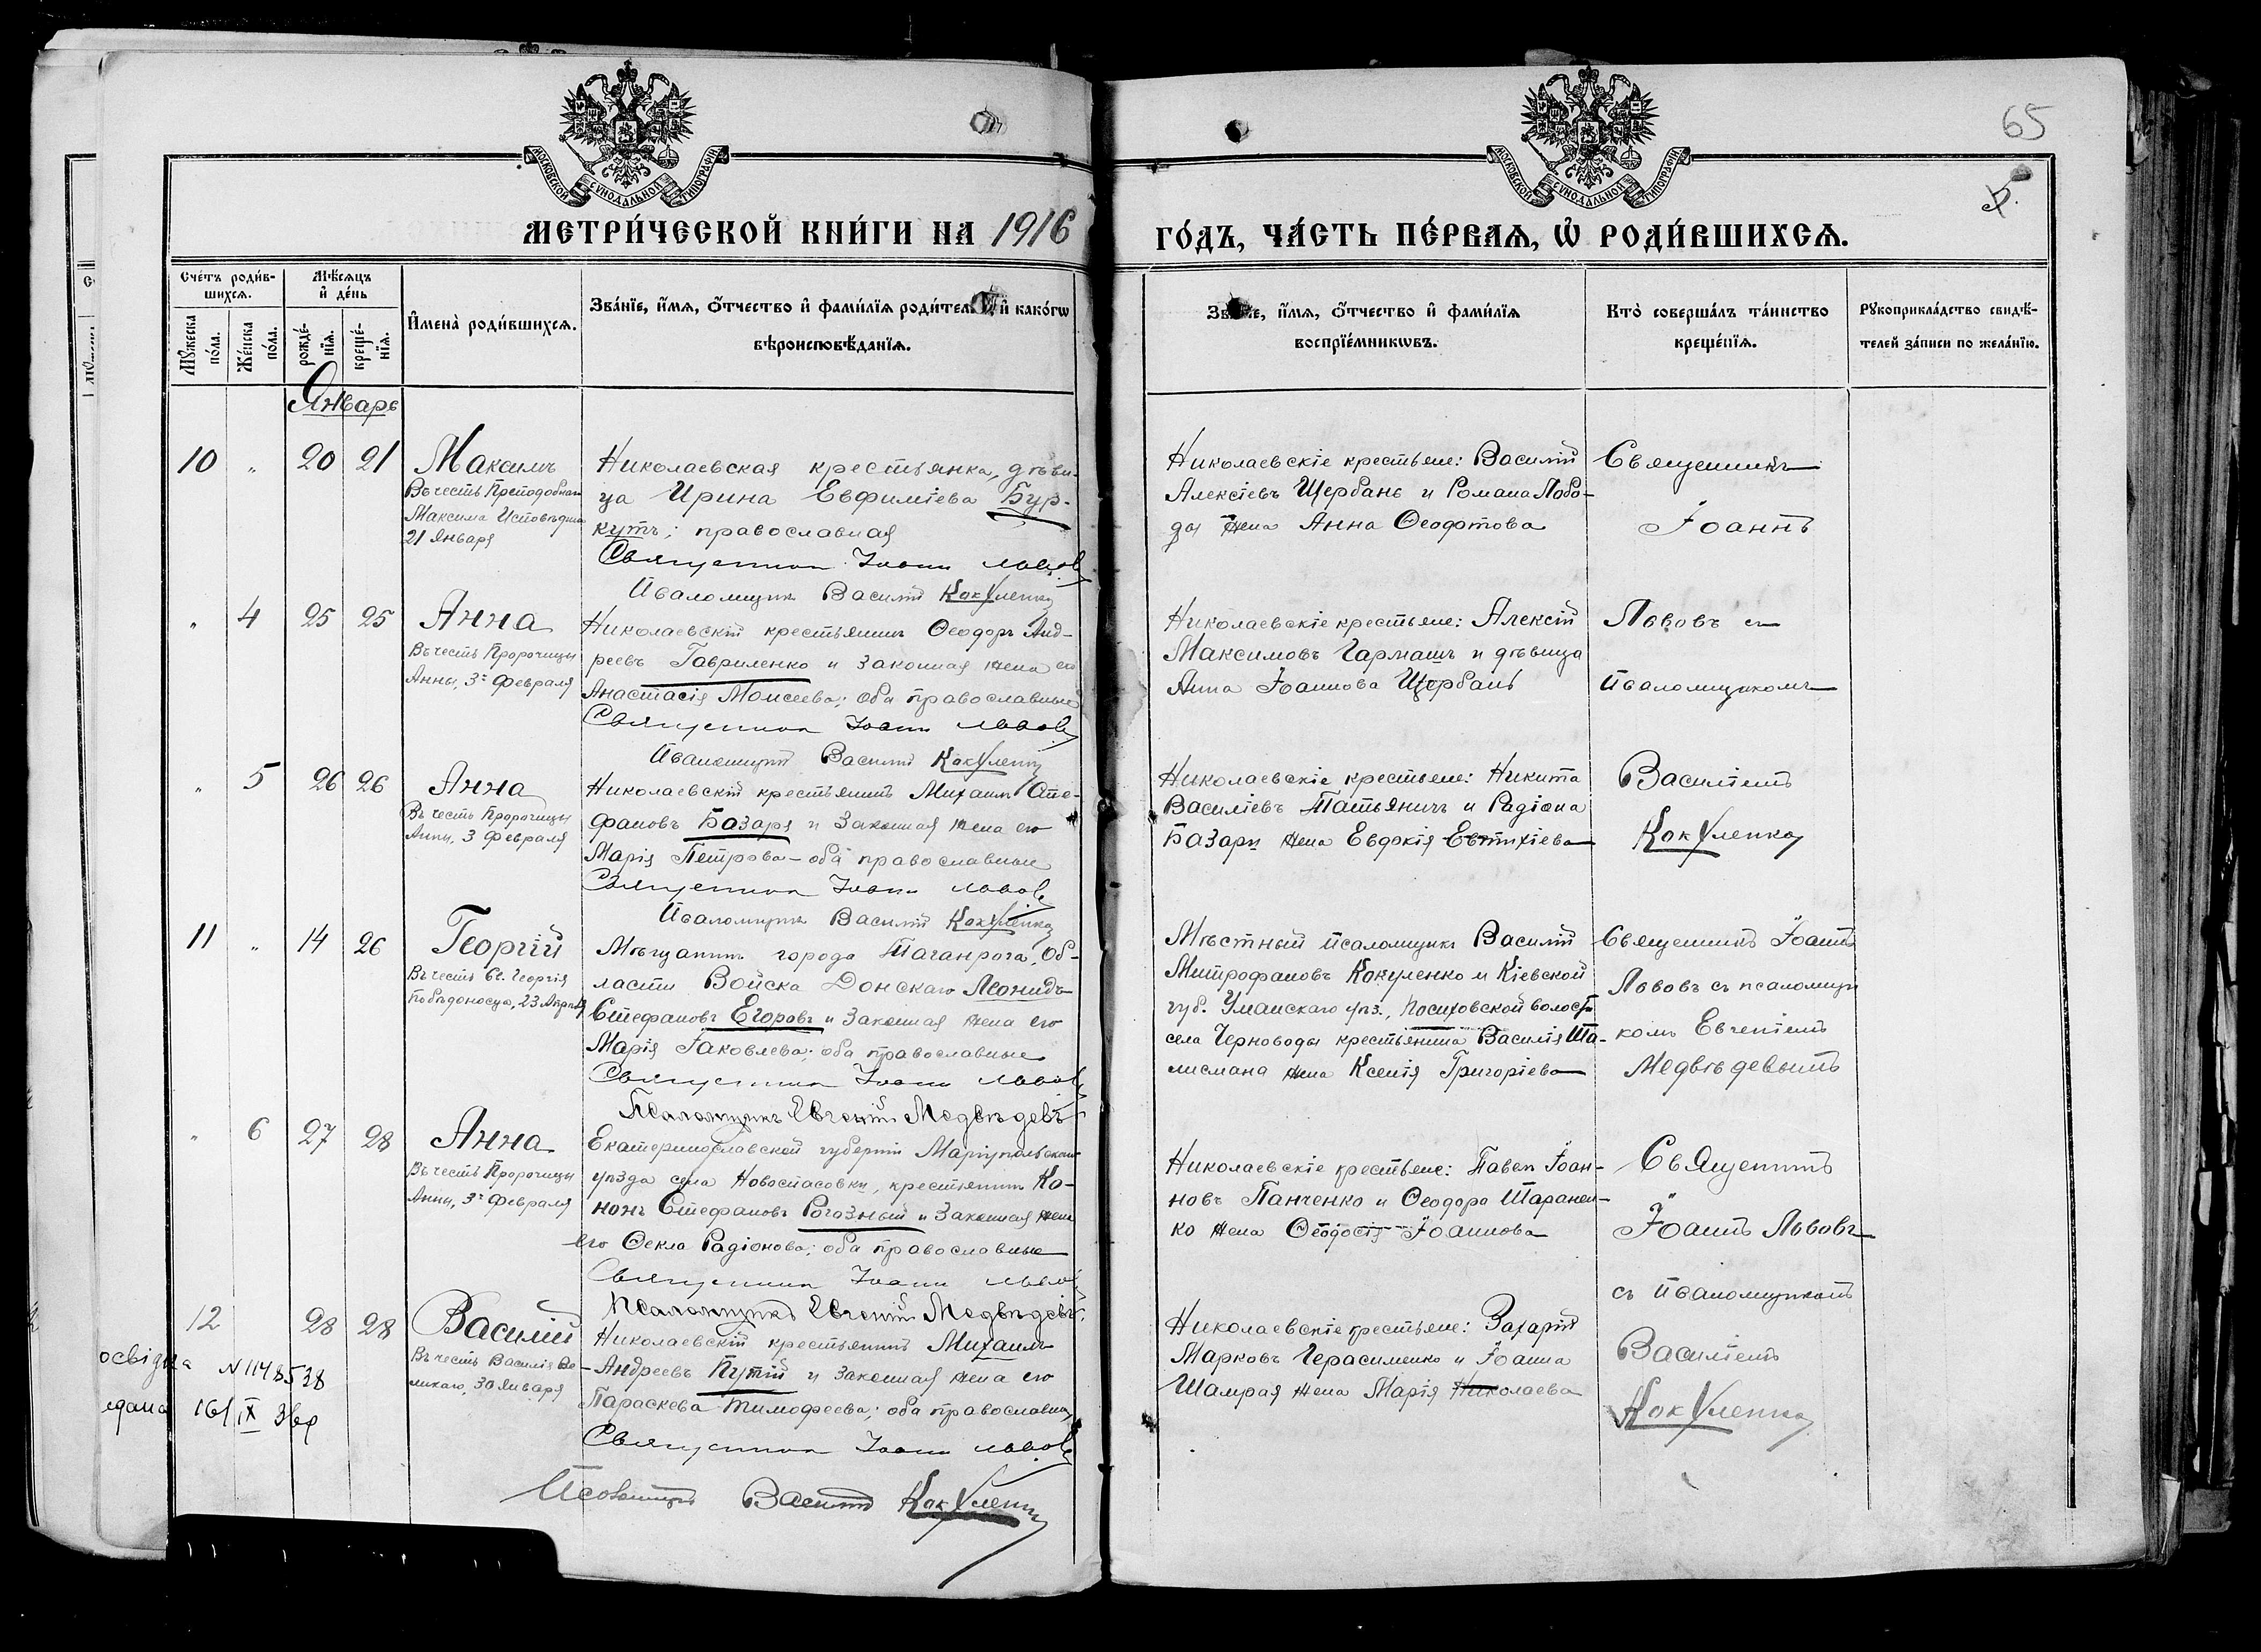 МОСКОВСКОЙ СѴНОДАЛЬНОЙ ТИПОГРАФІИ
МОСКОВСКОЙ СѴНОДАЛЬНОЙ ТИПОГРАФІИ
65
5.
МЕТРИ́ЧЕСКОЙ КНИ́ГИ НА 1916
ГО́ДЪ, ЧА́СТЬ ПЕ́РВАѦ, Ѡ РОДИ́ВШИХСѦ.
Сче́тъ роди́в-
шихсѧ.
Мꙋ́жеска по́ла.
Же́нска по́ла.
Мѣ́сѧцъ
и҆ де́нь
рожде́-
нїѧ.
креще́-
нїѧ.
И҆мена̀ роди́вшихсѧ.
Зва́нїе, и҆́мѧ, ѻ҆́тчество и҆ фами́лїѧ роди́тел и҆ како́гѡ
вѣроисповѣ́данїѧ.
Зв е, и҆́мѧ, ѻ҆́тчество и҆ фами́лїѧ
воспрїе́мникѡвъ.
Кто̀ соверша́лъ та́инство
креще́нїѧ.
Рꙋкоприкла́дство свидѣ́-
телей за́писи по жела́нїю.
Январь
10 " 20 21 Максимъ
Въ честь Преподобнаго
Максима Исповѣдника
21 Января
Николаевская крестьянка, дѣви-
ца Ирина Евфиміева Бур-
кутъ; православная
Священник Іоанн Львов
Псаломщикъ Василій Кокуленко
Николаевскіе крестьяне: Василій
Алексіевъ Щербань и Романа Лобо-
ды жена Анна Ѳеодотова
Священникъ
Іоаннъ
" 4 25 25 Анна
Въ честь Пророчицы
Анны, 3 Февраля
Николаевскій крестьянинъ Ѳеодоръ Анд-
реевъ Гавриленко и законная жена его
Анастасія Моисеева; оба православные
Священник Іоанн Львов
Псаломщикъ Василій Кокуленко
Николаевскіе крестьяне: Алексій
Максимовъ Гармашъ и дѣвица
Анна Іоаннова Щербань
Львовъ съ
псаломщикомъ
" 5 26 26 Анна
Въ честь Пророчицы
Анны, 3 Февраля
Николаевскій крестьянинъ Михаилъ Сте-
фановъ Базаря и законная жена его
Марія Петрова - оба православные
Священник Іоанн Львов
Псаломщикъ Василій Кокуленко
Николаевскіе крестьяне: Никита
Василіевъ Татьяничъ и Радіона
Базари жена Евдокія Евтихіева
Василіемъ
Кокуленко
11 " 14 26 Георгій
Въ честь Св. Георгія
Побѣдоносца, 23 Апрѣля
Мѣщанинъ города Таганрога, Об-
ласти Войска Донскаго Леонидъ
Стефановъ Егоровъ и законная жена его
Марія Іаковлева; оба православные
Священник Іоанн Львов
Псаломщикъ Евгеній Медвѣдевъ
Мѣстный псаломщикъ Василій
Митрофановъ Кокуленко и Кіевской
губ. Уманскаго уѣз., волости
села Черноводы крестьянина Василія Та-
лисмана жена Ксенія Григоріева
Священникъ Іоаннъ
Львовъ съ псаломщи
комъ Евгеніемъ
Медвѣдевымъ
" 6 27 28 Анна
Въ честь Пророчицы
Анны, 3 Февраля
Екатеринославской губерніи Маріупольскаго
уѣзда села Новоспасовки, крестьянинъ Ко-
нонъ Стефановъ Рогозный и законная жена
его Ѳекла Радіонова; оба православные
Священник Іоанн Львов
Псаломщикъ Евгеній Медвѣдевъ
Николаевскіе крестьяне: Павел Іоан-
новъ Панченко и Ѳеодора Таранен-
ко жена Ѳеодосія Іоаннова
Священникъ
Іоаннъ Львовъ
съ псаломщикомъ
12 28 28 Василій
Въ честь Василія Ве-
ликаго, 30 Января
Николаевскій крестьянинъ Михаилъ
Андреевъ Путій и законная жена его
Параскева Тимофеева; оба православные
Священник Іоанн Львов
Псаломщикъ Василій Кокуленко
Николаевскіе крестьяне: Захарій
Марковъ Герасименко и Іоанна
Шамрая жена Марія Николаева
Василіемъ
Кокуленко
N 1148538
16/IX 36р